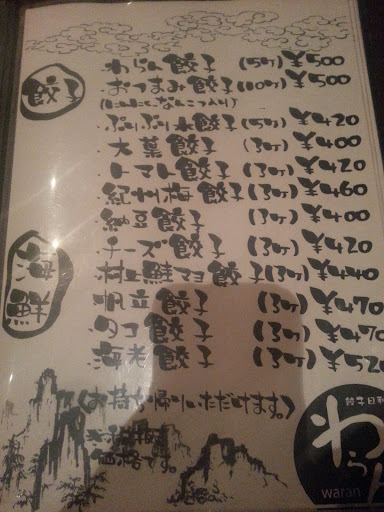 餃子
・わらん餃子 (5ケ) ¥500
・おつまみ餃子 (10ケ) ¥500
(にんにく、なんこつ入り)
・ぷりぷり水餃子 (5ケ) ¥420
・大葉餃子 (3ケ) ¥400
・トマト餃子 (3ケ) ¥420
・紀州梅餃子 (3ケ) ¥460
・納豆餃子 (3ケ) ¥400
・チーズ餃子 (3ケ) ¥420
海鮮
・紅鮭マヨ餃子 (3ケ) ¥440
・帆立餃子 (3ケ) ¥470
・タコ餃子 (3ケ) ¥470
・海老餃子 (3ケ) ¥520
(お持ち帰りいただけます。)
価格です。
餃子日和
わらん
waran